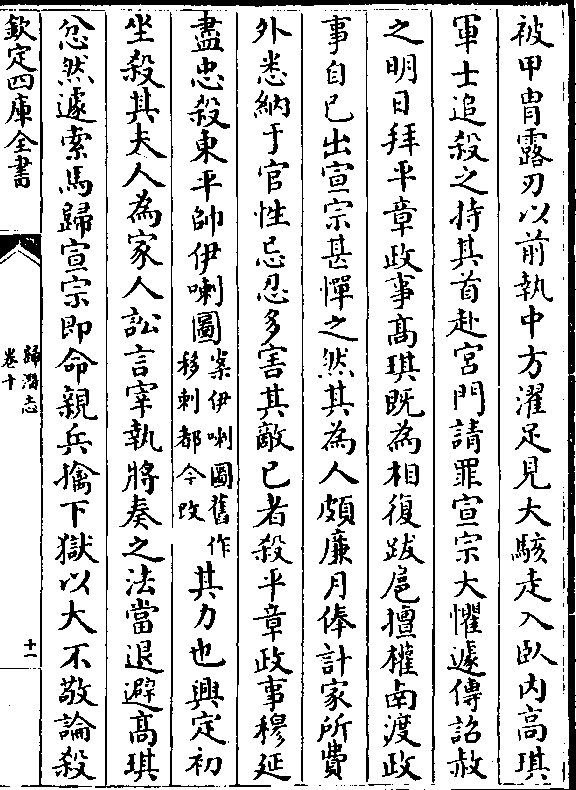 被甲胄露刃以前執中方濯足見大駭走入臥内高琪
軍士追殺之持其首赴宮門請罪宣宗大懼遽傳詔赦
之明日拜平章政事高琪既為相復跋扈擅權南渡政
事自已出宣宗甚憚之然其為人頗廉月俸計家所費
外悉納于官性忌忍多害其敵已者殺平章政事穆延
盡忠殺東平帥伊喇圖案伊喇圖舊作移剌都今改其力也興定初
坐殺其夫人為家人訟言宰執將奏之法當退避高琪
忿然遽索馬歸宣宗即命親兵擒下獄以大不敬論殺
欽定四庫全書
歸潛志
卷十
十一